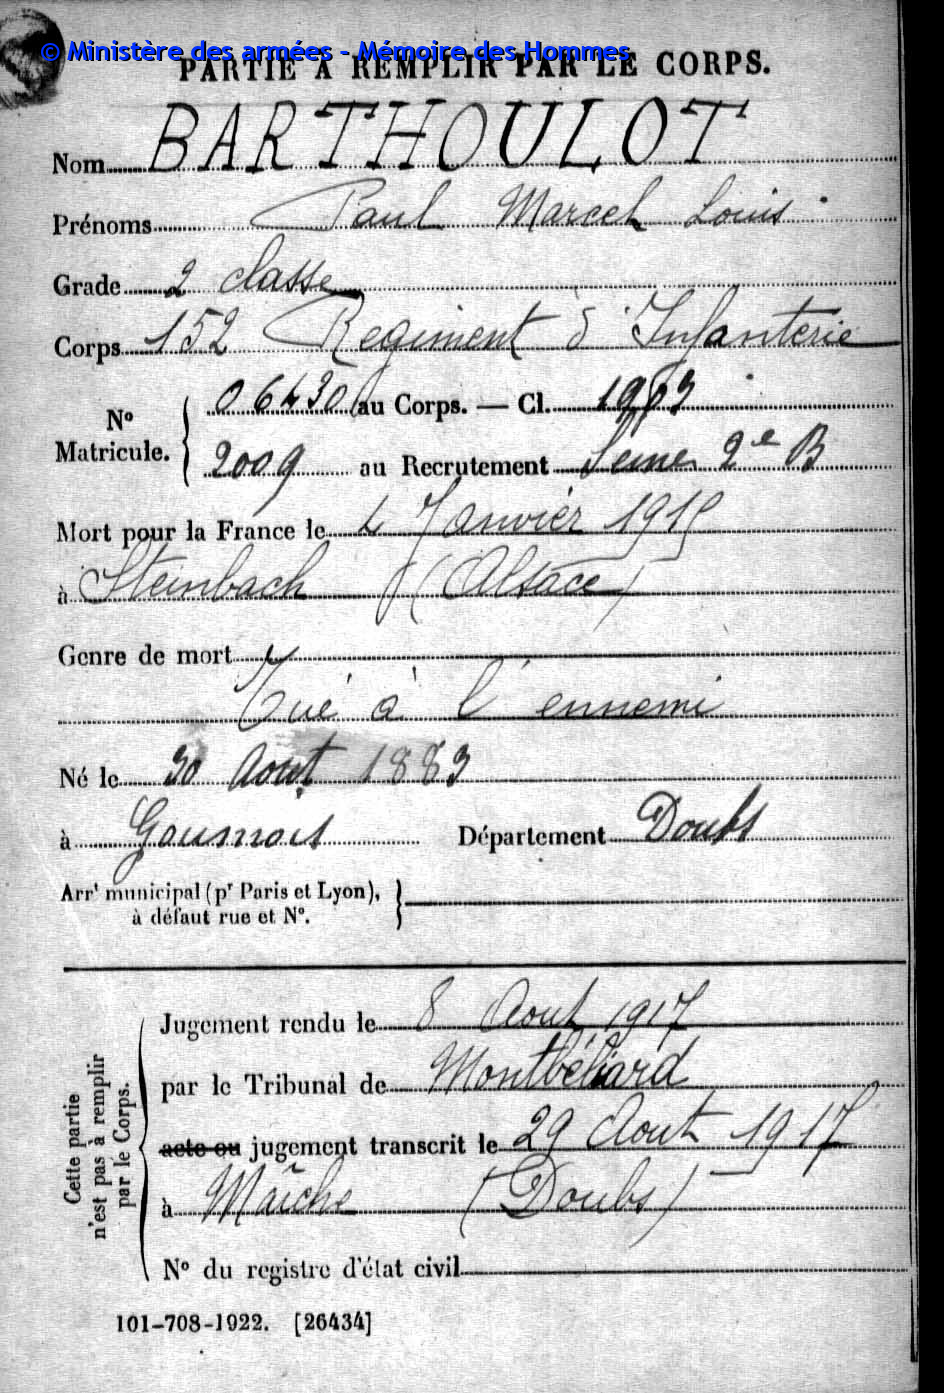 © Ministère des armées - Mémoire des Hommes
PARTIE À REMPLIR PAR LE CORPS.
Nom BARTHOULOT
Prénoms Paul Marcel Louis
Grade 2 classe
Corps 152 Regiment d'Infanterie
N° Matricule. { 06430 au Corps. — Cl. 1903
2009 au Recrutement Seine 2e B
Mort pour la France le 4 Janvier 1915
à Steinbach (Alsace)
Genre de mort
Tué à l'ennemi
Né le 30 Aout 1883
à Goumois Département Doubs
Arrt municipal (pr Paris et Lyon),
à défaut rue et N°.
Cette partie
n'est pas à remplir
par le Corps.
Jugement rendu le 8 Aout 1917
par le Tribunal de Montbéliard
acte ou jugement transcrit le 29 Aout 1917
à Maîche (Doubs)
N° du registre d'état civil
101-708-1922. [26434]